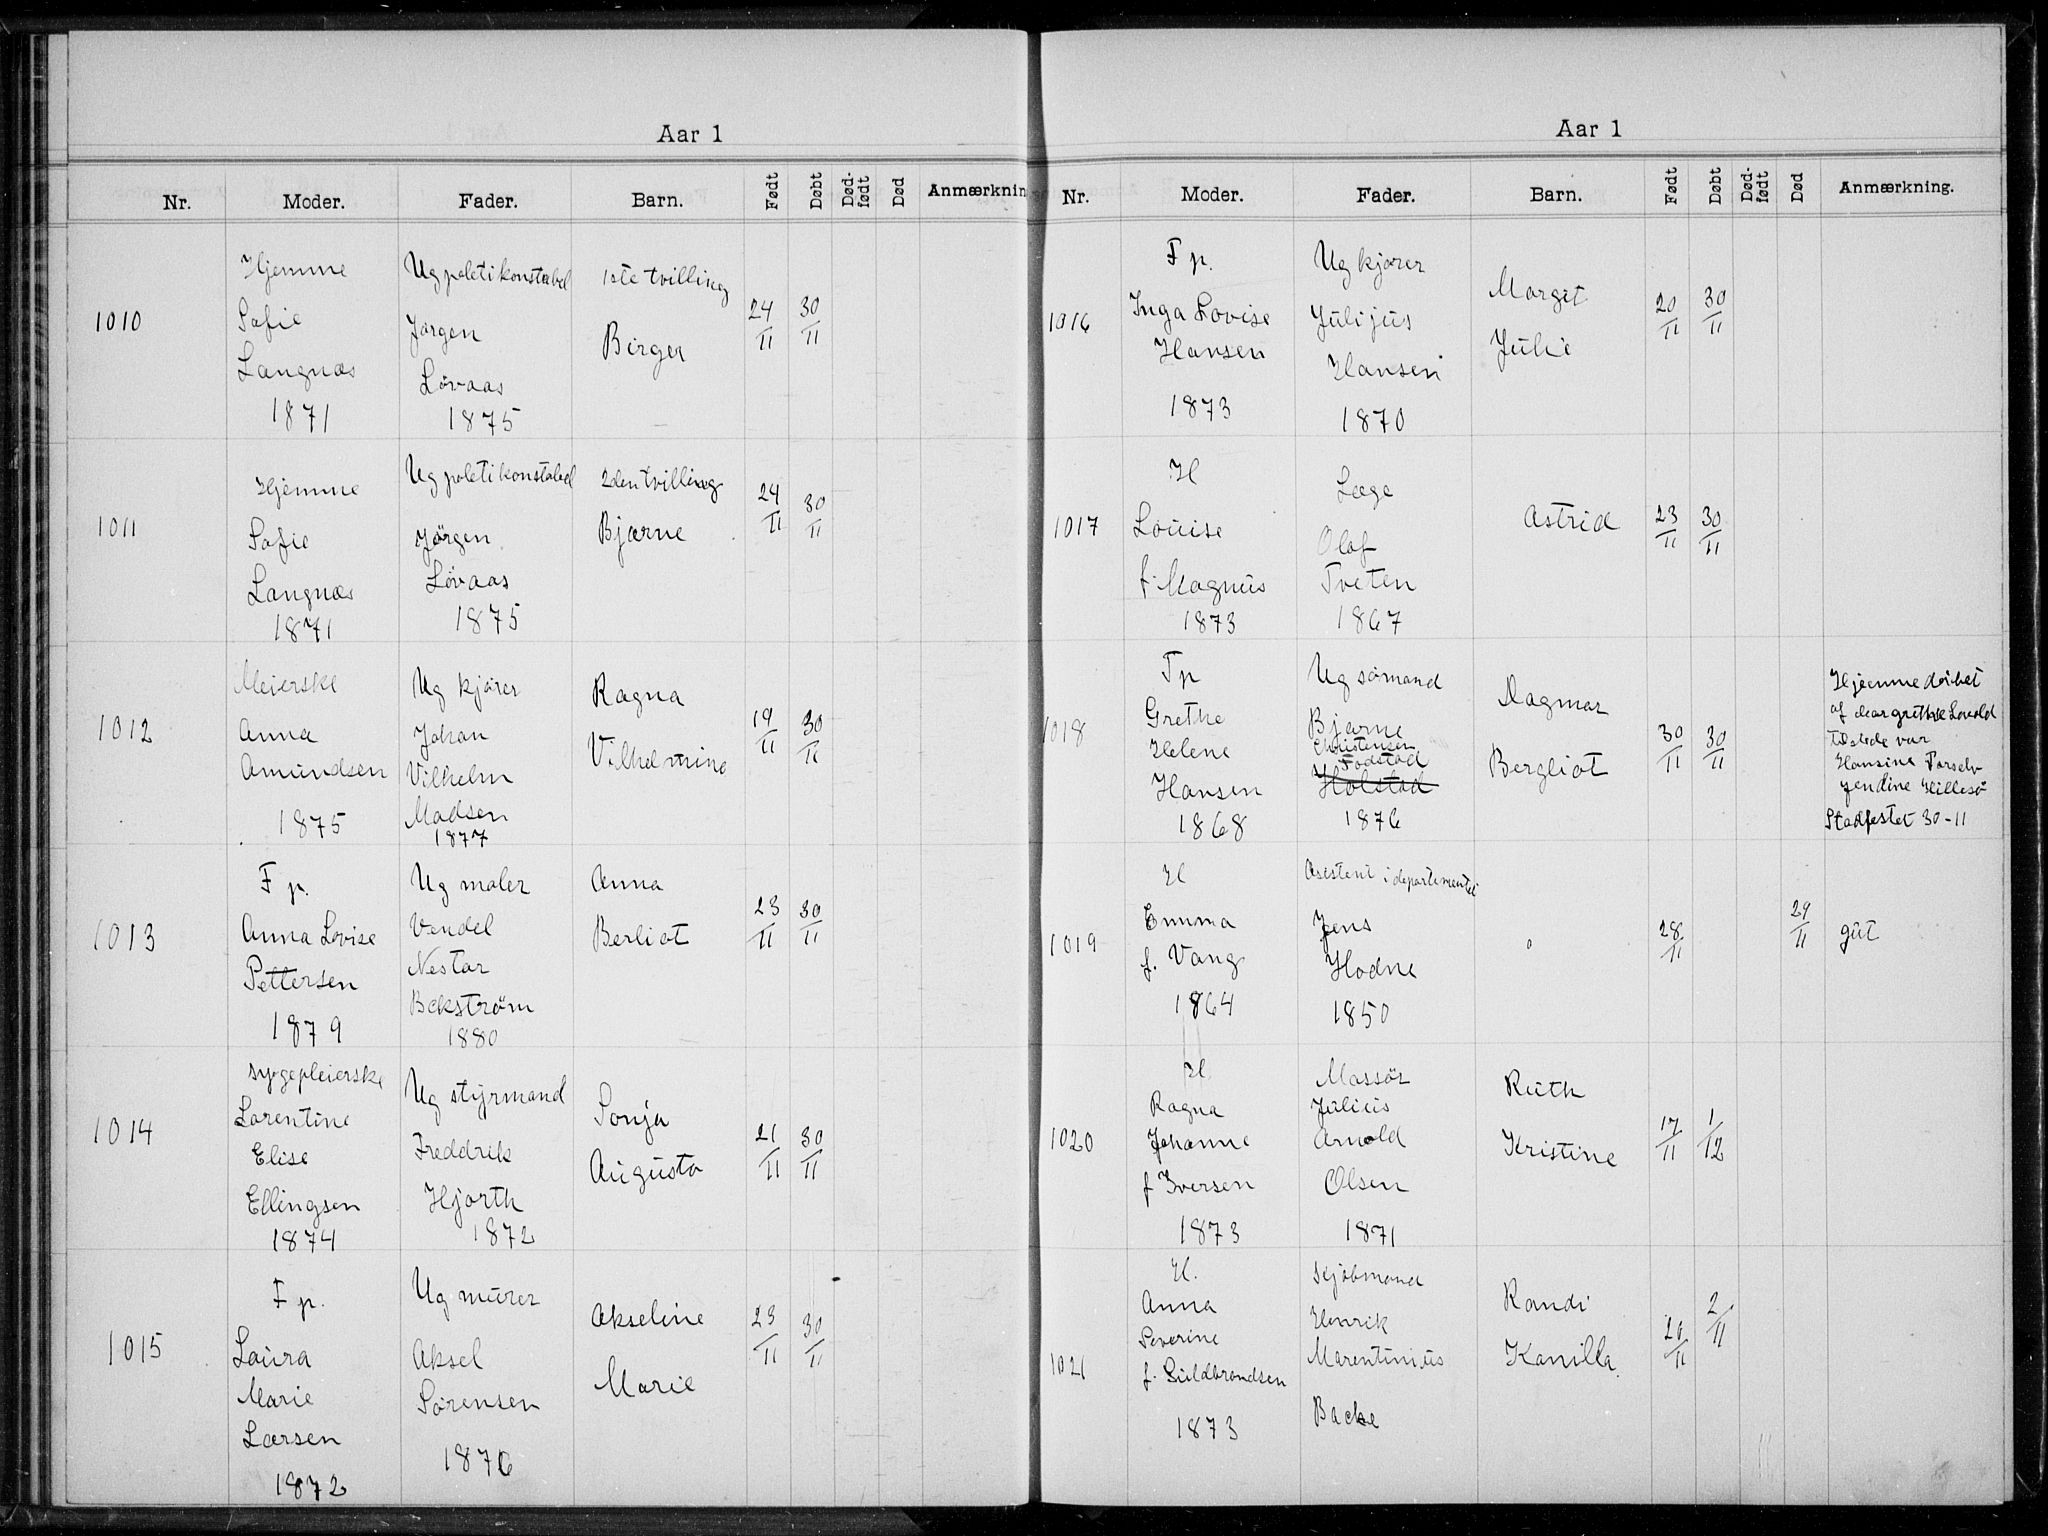 Aar 1
Nr. Moder. Fader. Barn. Født Døbt Død-født Død Anmærknin
1010
Hjemme
Sofie
Langnæs
1871
Ug politikonstabel
Jørgen
Løvaas
1875
1ste tvilling
Birger
24/11 30/11
1011
Hjemme
Sofie
Langnæs
1871
Ug politikonstabel
Jørgen
Løvaas
1875
2den tvilling
Bjarne
24/11 30/11
1012
Meierske
Anna
Amundsen
1875
Ug kjører
Johan
Vilhelm
Madsen
1877
Ragna
Vilhelmine
19/11 30/11
1013
F p.
Anna Lovise
Pettersen
1879
Ug maler
Vendel
Nestor
Bekstrøm
1880
Anna
Berliot
23/11 30/11
1014
sygepleierske
Lorentine
Elise
Ellingsen
1874
Ug styrmand
Freddrik
Hjorth
1872
Sonja
Augusta
21/11 30/11
1015
F p.
Laura
Marie
Larsen
1872
Ug murer
Aksel
Sørensen
1876
Akseline
Marie
23/11 30/11
Aar 1
Nr. Moder. Fader. Barn. Født Døbt Død-født Død Anmærkning.
1016
F p.
Inga Lovise
Hansen
1873
Ug kjører
Julijus
Hansen
1870
Margit
Julie
20/11 30/11
1017
H
Louise
f. Magnus
1873
Læge
Olaf
Tveten
1867
Astrid
23/11 30/11
1018
Fp
Grethe
Helene
Hansen
1868
Ug sømand
Bjarne
Christensen
Fodstad
Holstad
1876
Dagmar
Bergliot
30/11 30/11
Hjemmedøbet
af Margrethe Lovold
tilstede var
Hansine
Jendine Hillesø
Stadfestet 30-11
1019
H
Emma
f. Vang
1864
Asistent i departementet
Jens
Hodne
1850
28/11 29/11
gut
1020
H
Ragna
Johanne
f Iversen
1873
Massør
Julius
Arnold
Olsen
1871
Ruth
Kristine
17/11 1/12
1021
H.
Anna
Severine
f. Guldbrandsen
1873
Kjøbmand
Henrik
Marentinius
Backe
Randi
Kanilla
20/11 2/11